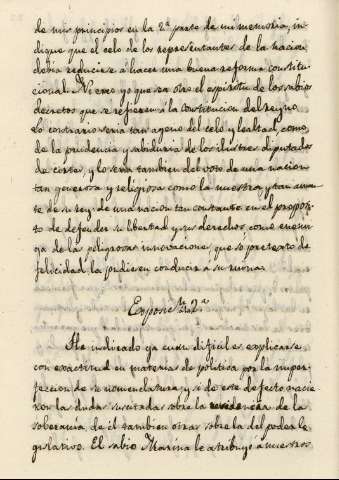 de mis principios en la 2ª parte de mi memoria, in-
diqué que el celo de los representantes de la nacion
debia reducirse a hacer una buena reforma constitu-
cional. Ni creo yo que sea otro el espiritu de los sabios
decretos que se refieren á la Constitucion del reyno.
Lo contrario seria tan ageno del celo y lealtad, como,
de la prudencia y sabiduria de los ilustres diputados
de cortes, y lo seria tambien del voto de una nacion
tan generosa y religiosa como la nuestra, y tan aman-
te de su rey: de una nacion tan constante en el proposi-
to de defender su libertad y sus derechos, como enemi-
ga de las peligrosas innovaciones, que só pretexto de
felicidad la pudiesen conducir á su ruina.
2ª
He indicado ya cuan dificil es explicarse
con exactitud en materias de politica por la imper-
feccion de su nomenclatura, y si de este defecto nacie-
ron las dudas suscitadas sobre la residencia de la
soberania, de él tambien otras sobre la del poder le-
gislativo. El sabio Marina le atribuye a nuestros